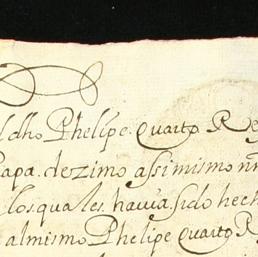 dho Phelipe quarto Re
apa. dezimo assi mismo
los quales. havia. sido hech
al mismo Phelipe quarto R